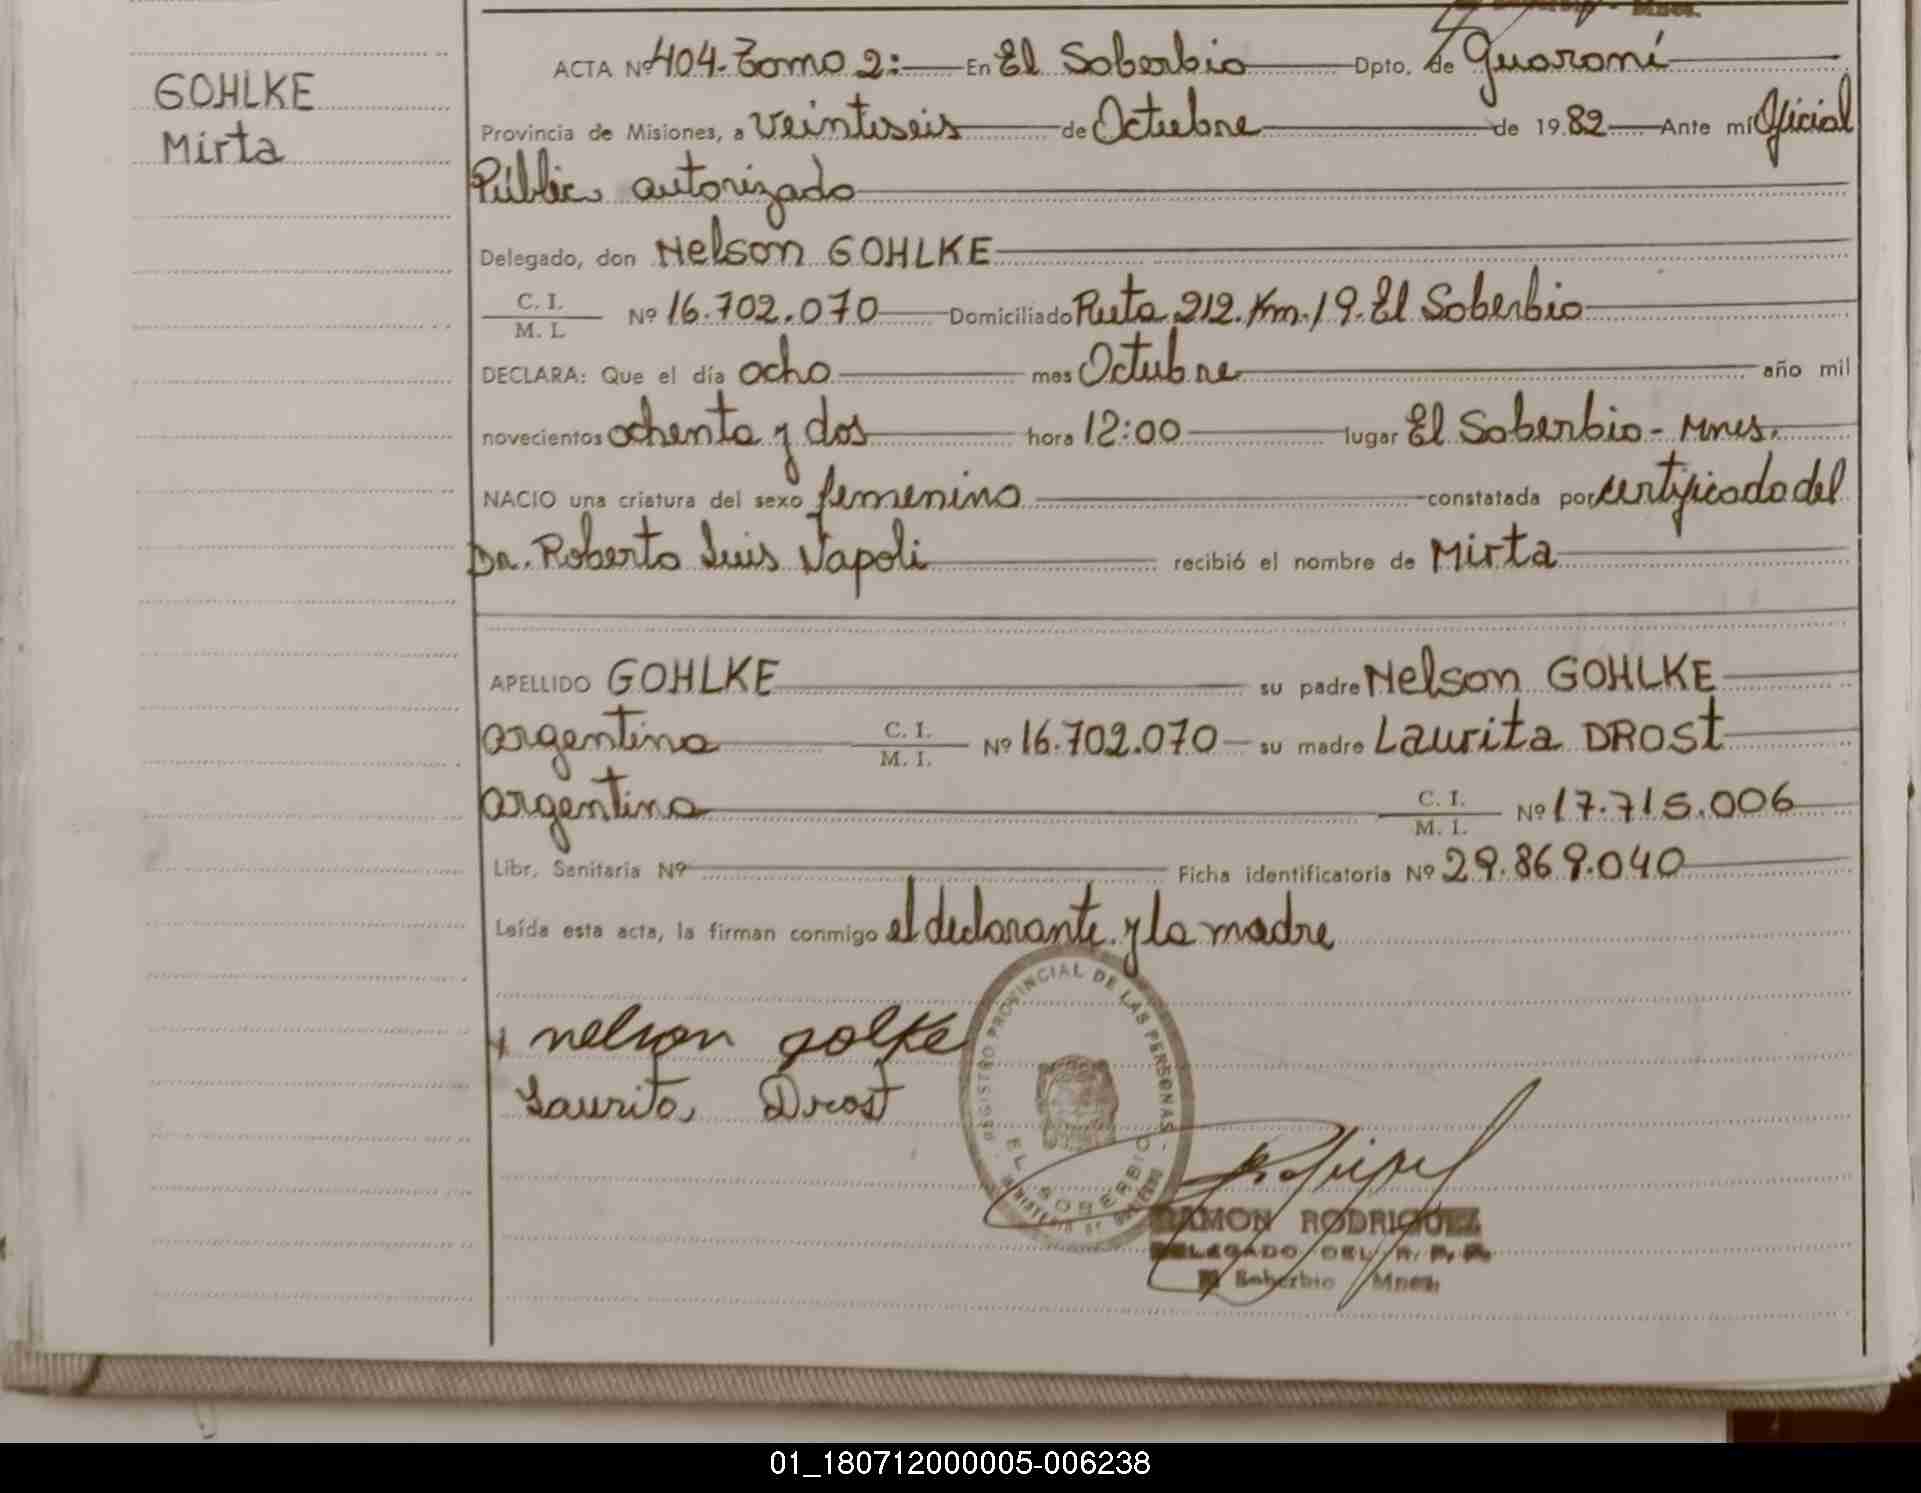 GOHLKE
Mirta
ACTA Nº 404. Tomo 2: En El Soberbio Dpto. de Guaraní
Provincia de Misiones, a veintiseis de Octubre de 1982 Ante mí Oficial
Público autorizado
Delegado, don Nelson GOHLKE
C. I. / M. I. Nº 16.702.070 Domiciliado Ruta 212. Km. 19. El Soberbio
DECLARA: Que el día ocho mes Octubre año mil
novecientos ochenta y dos hora 12:00 lugar El Soberbio - Mnes.
NACIO una criatura del sexo femenino constatada por certificado del
Dr. Roberto Luis Napoli recibió el nombre de Mirta
APELLIDO GOHLKE su padre Nelson GOHLKE
argentino C. I. / M. I. Nº 16.702.070 su madre Laurita DROST
argentina C. I. / M. I. Nº 17.715.006
Libr. Sanitaria Nº Ficha identificatoria Nº 29.869.040
Leída esta acta, la firman conmigo el declarante y la madre
nelson golke
Laurita Drost
REGISTRO PROVINCIAL DE LAS PERSONAS
EL SOBERBIO
RAMON RODRIGUEZ
DELEGADO DEL R. P. P.
El Soberbio Mnes.
01_180712000005-006238